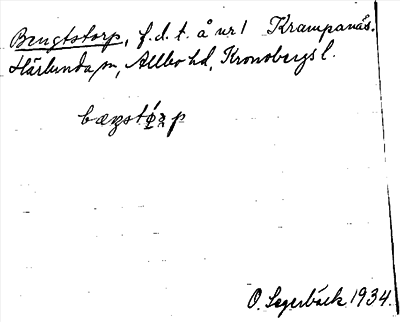 Bengtstorp, f.d.t. å nr 1 Krampanäs.
Härlunda sn, Allbo hd, Kronobergs l.
O. Segerbäck 1934.